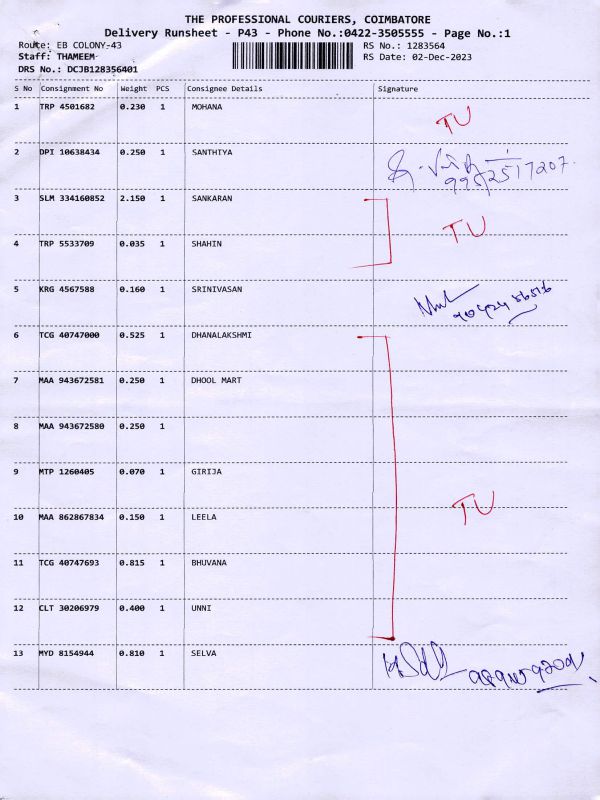 THE PROFESSIONAL COURIERS, COIMBATORE
Delivery Runsheet - P43 - Phone No.:0422-3505555 - Page No.:1
Route: EB COLONY-43 RS No.: 1283564
Staff: THAMEEM RS Date: 02-Dec-2023
DRS No.: DCJB128356401
S No Consignment No Weight PCS Consignee Details Signature
1 TRP 4501682 0.230 1 MOHANA TU
2 DPI 10638434 0.250 1 SANTHIYA
3 SLM 334160852 2.150 1 SANKARAN TU
4 TRP 5533709 0.035 1 SHAHIN
5 KRG 4567588 0.160 1 SRINIVASAN
6 TCG 40747000 0.525 1 DHANALAKSHMI
7 MAA 943672581 0.250 1 DHOOL MART
8 MAA 943672580 0.250 1
9 MTP 1260405 0.070 1 GIRIJA TU
10 MAA 862867834 0.150 1 LEELA
11 TCG 40747693 0.815 1 BHUVANA
12 CLT 30206979 0.400 1 UNNI
13 MYD 8154944 0.810 1 SELVA